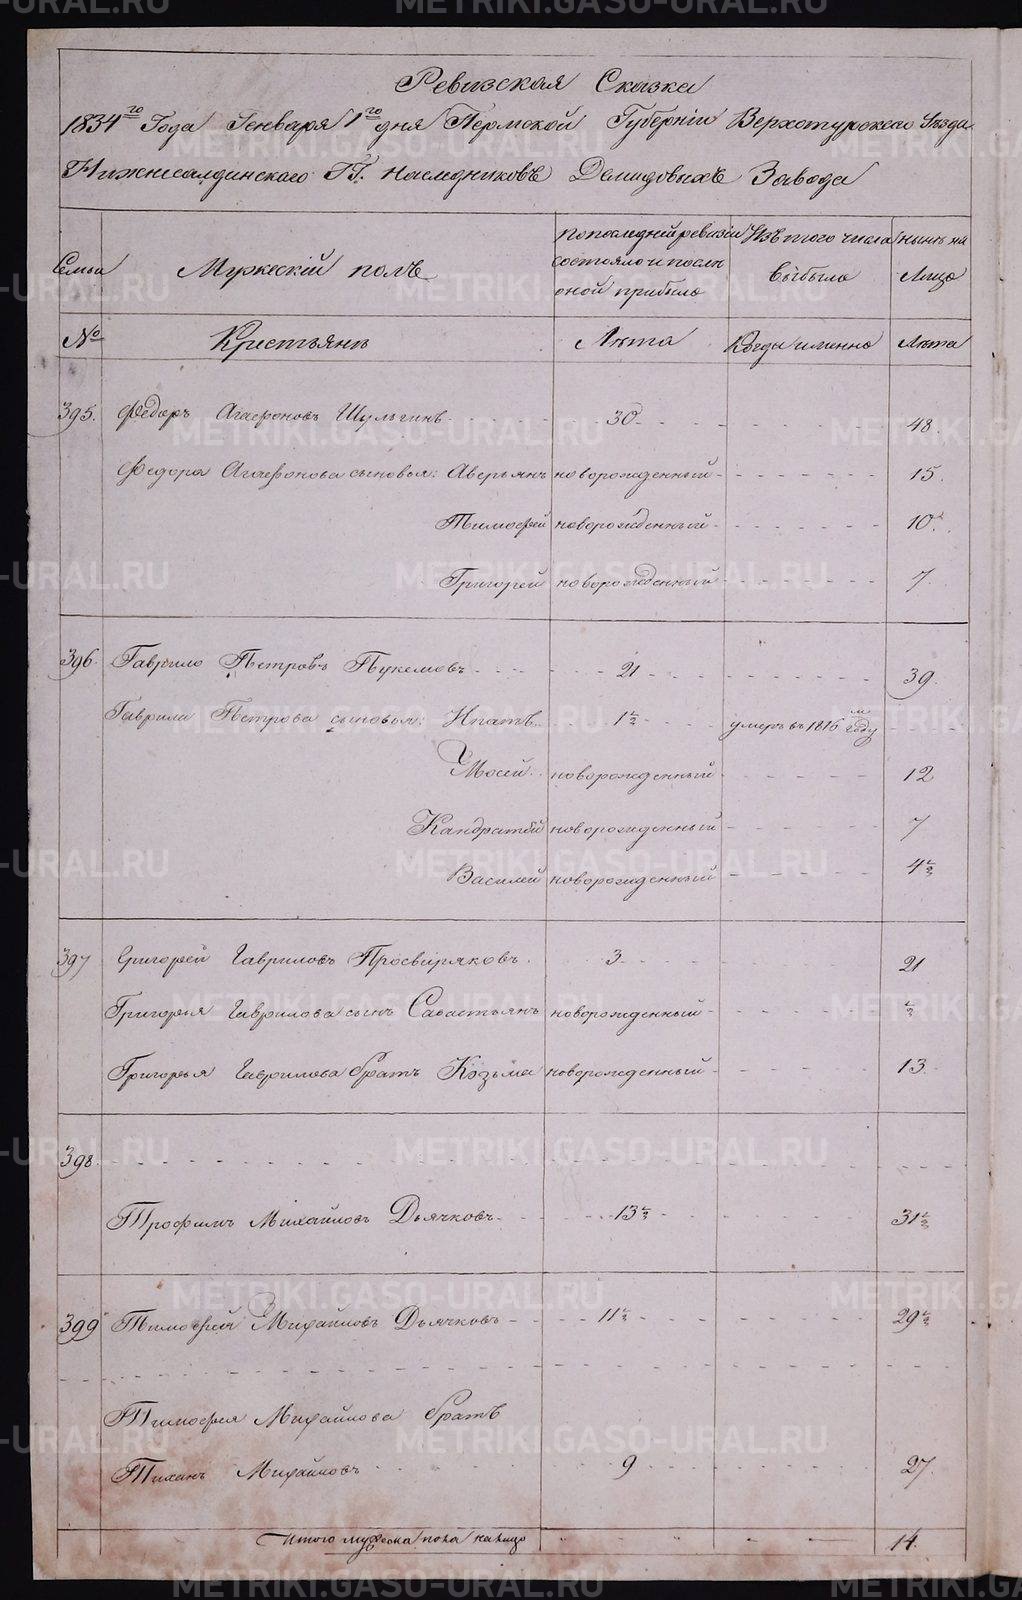 Ревизская Сказка
1834го Года Генваря 1го дня Пермской Губернiи Верхотурскаго Уѣзда
Нижнесалдинскаго ГГ. Наследниковъ Демидовыхъ Завода
Семьи Мужескiй полъ По последней ревизiи состояло и послѣ оной прибыло Изъ того числа выбыло Нынѣ на Лицо
№ Крестьянъ Лѣта Когда именно Лѣта
395. Федоръ Агафоновъ Шульгинъ 30 48.
Федора Агафонова сыновья: Аверьянъ новорожденный 15.
Тимофей новорожденный 10.
Григорей новорожденный 7.
396. Гаврило Петровъ Пукемовъ 21 39.
Гаврила Петрова сыновья: Ипатъ 1½ умеръ въ 1816м году
Мосей новорожденный 12
Кандратей новорожденный 7
Василей новорожденный 4½
397 Григорей Гавриловъ Просвиряковъ 3 21
Григорья Гаврилова сынъ Савастьянъ новорожденный ½
Григорья Гаврилова братъ Козьма новорожденный 13.
398.
Трофимъ Михайловъ Дьячковъ 13½ 31½
399 Тимофей Михайловъ Дьячковъ 11½ 29½
Тимофея Михайлова братъ
Тихонъ Михайловъ 9 27.
Итого мужеска пола налицо 14.
METRIKI.GASO-URAL.RU